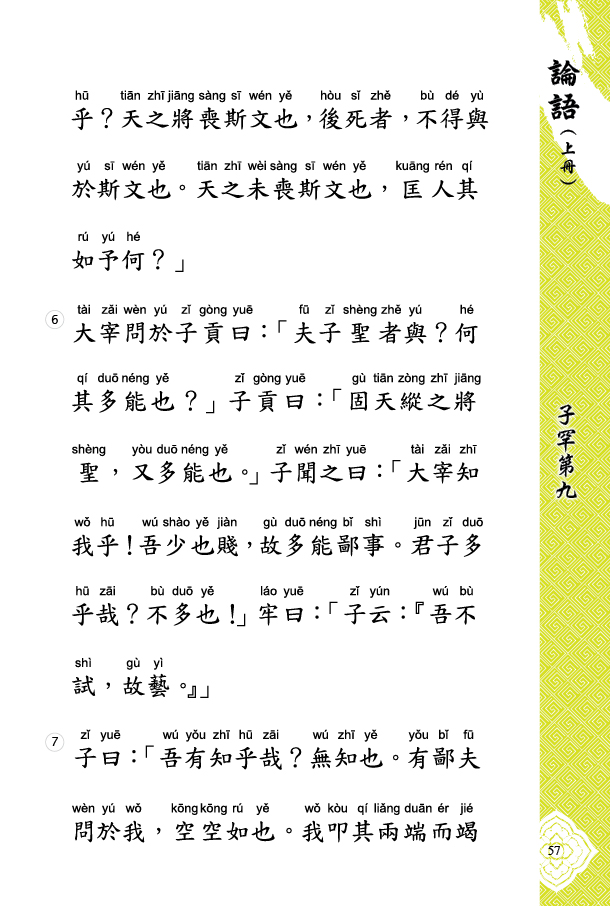 hū tiān zhī jiāng sàng sī wén yě hòu sǐ zhě bù dé yù
乎？天之將喪斯文也，後死者，不得與
yú sī wén yě tiān zhī wèi sàng sī wén yě kuāng rén qí
於斯文也。天之未喪斯文也，匡人其
rú yú hé
如予何？」
6
tài zǎi wèn yú zǐ gòng yuē fū zǐ shèng zhě yú hé
大宰問於子貢曰：「夫子聖者與？何
qí duō néng yě zǐ gòng yuē gù tiān zòng zhī jiāng
其多能也？」子貢曰：「固天縱之將
shèng yòu duō néng yě zǐ wén zhī yuē tài zǎi zhī
聖，又多能也。」子聞之曰：「大宰知
wǒ hū wú shào yě jiàn gù duō néng bǐ shì jūn zǐ duō
我乎！吾少也賤，故多能鄙事。君子多
hū zāi bù duō yě láo yuē zǐ yún wú bù
乎哉？不多也！」牢曰：「子云：『吾不
shì gù yì
試，故藝。』」
7
zǐ yuē wú yǒu zhī hū zāi wú zhī yě yǒu bǐ fū
子曰：「吾有知乎哉？無知也。有鄙夫
wèn yú wǒ kōng kōng rú yě wǒ kòu qí liǎng duān ér jié
問於我，空空如也。我叩其兩端而竭
論語（上冊）
子罕第九
57